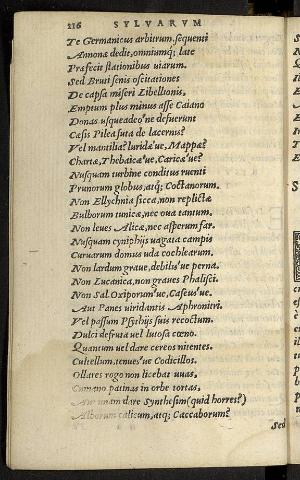 216 SYLVARVM
Te Germanicus arbitrum sequenti
Annonæ dedit, omniumq; late
Præfecit stationibus uiarum.
Sed Bruti senis oscitationes
De capsa miseri Libellionis,
Emptum plus minus asse Caiano
Donas. usqueadeo'ne defuerunt
Cæsis Pilea suta de lacernis?
Vel mantilia? luridæ'ue, Mappæ?
Chartæ, Thebaicæ'ue, Caricæ'ue?
Nusquam turbine conditus ruenti
Prunorum globus, atq; Coctanorum.
Non Ellychnia sicca, non replictæ
Bulborum tunicæ, nec oua tantum.
Non leues Alicæ, nec asperum far.
Nusquam cyniphijs uagata campis
Curuarum domus uda cochlearum.
Non lardum graue, debilis'ue perna.
Non Lucanica, non graues Phalisci.
Non Sal. Oxiporum'ue, Caseus'ue.
Aut Panes uiridantis Aphronitri.
Vel passum Psythijs suis recoctum.
Dulci defruta uel lutosa cœno.
Quantum uel dare cereos nitentes.
Cultellum, tenues'ue Codicillos.
Ollares rogo non licebat uuas,
Cumano patinas in orbe tortas,
Aut unam dare Synthesim (quid horres?)
Alborum calicum, atq; Caccaborum?
Sed